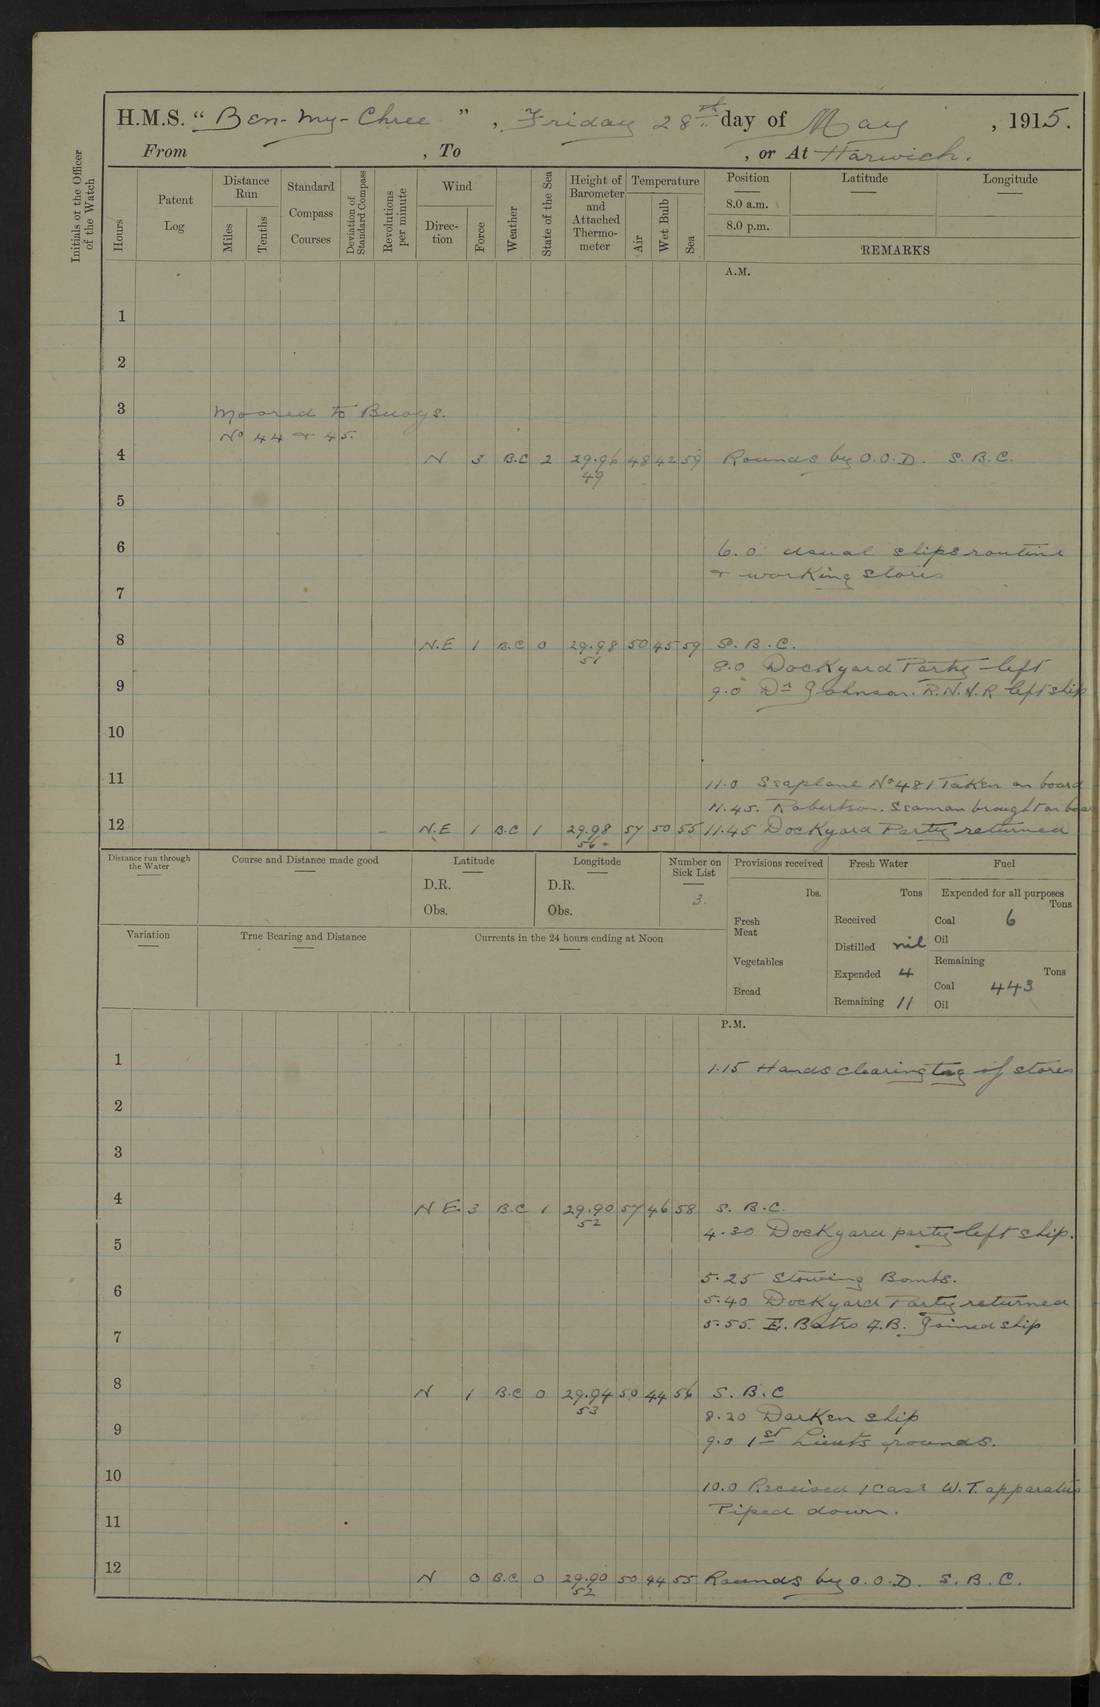 H.M.S. “ Ben-my-Chree ” , Friday 28th day of May , 1915.
From , To , or At Harwich.
Initials of the Officer of the Watch
Hours
Patent Log
Distance Run
Miles
Tenths
Standard Compass Courses
Deviation of Standard Compass
Revolutions per minute
Wind
Direction
Force
Weather
State of the Sea
Height of Barometer and Attached Thermometer
Temperature
Air
Wet Bulb
Sea
Position
8.0 a.m.
8.0 p.m.
Latitude
Longitude
REMARKS
A.M.
1
2
3 Moored to Buoys.
No 44 & 45.
4 N 3 B.C 2 29.96 48 42 59 Rounds by O.O.D. S.B.C.
49
5
6 6.0 usual ships routine
& working stores
7
8 N.E 1 B.C 0 29.98 50 45 59 S.B.C.
51
8.0 Dockyard Party left
9 9.0 Dr Johnson. R.N.V.R left ship
10
11 11.0 Seaplane No 481 Taken on board
11.45. Robertson. Seaman brought on boa
12 N.E 1 B.C 1 29.98 57 50 55 11.45 Dockyard Party returned
56
Distance run through the Water
Course and Distance made good
Latitude
D.R.
Obs.
Longitude
D.R.
Obs.
Number on Sick List
3.
Provisions received
lbs.
Fresh Meat
Vegetables
Bread
Fresh Water
Tons
Received
Distilled nil
Expended 4
Remaining 11
Fuel
Expended for all purposes
Tons
Coal 6
Oil
Remaining
Tons
Coal 443
Oil
Variation
True Bearing and Distance
Currents in the 24 hours ending at Noon
P.M.
1 1.15 Hands clearing tug of stores
2
3
4 N E. 3 B.C 1 29.90 57 46 58 S. B.C.
52
4.30 Dockyard party left ship.
5
5.25 Stowing Bombs.
6 5.40 Dockyard Party returned
5.55. E. Bates A.B. Joined ship
7
8 N 1 B.C 0 29.94 50 44 56 S. B.C
53
8.20 Darken ship
9 9.0 1st Lieuts rounds.
10 10.0 Received 1 Case W.T. apparatus
Piped down.
11
12 N 0 B.C 0 29.90 50 44 55 Rounds by O.O.D. S.B.C.
52